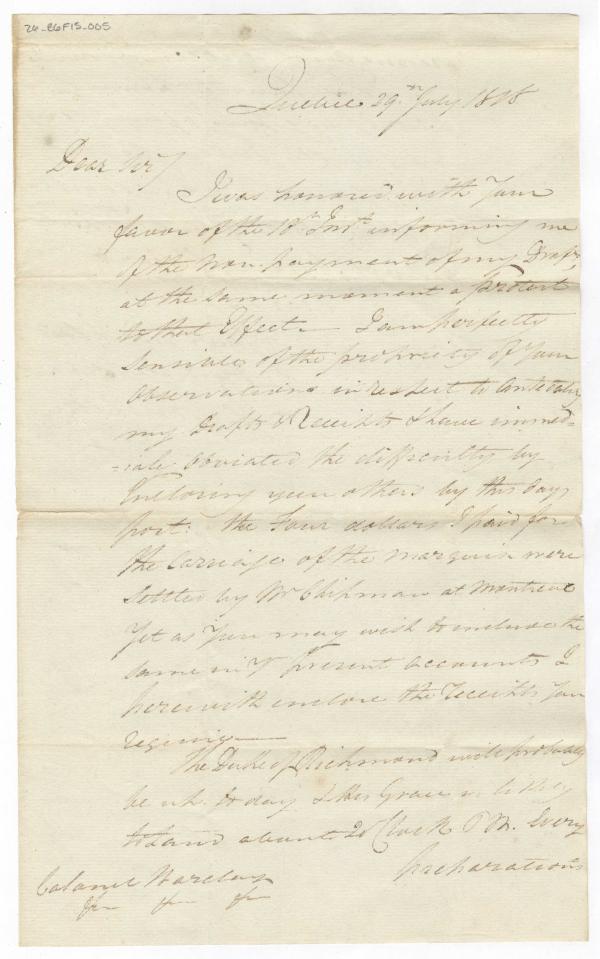 26-E6F15-005
Quebec 29th July 1818
Dear Sir/
I was honored with Your
favor of the 18th Inst. informing me
of the Non-payment of my Draft,
at the same moment a protest
to that Effect. I am perfectly
sensible of the propriety of Your
Observations in respect to Antedating
my Drafts & Receipts & have immed-
-iate obviated the difficulty by
Enclosing you others by this days
post. The Four dollars I paid for
the Carriage of the marquis were
settled by Mr Chipman at Montreal
Yet as You may wish to include the
same in Yr present accounts I
herewith enclose the Receipts You
require
The Duke of Richmond will probably
be up to day & His Grace is likely
to Land about 2 O'Clock P M. Every
preparations
Colonel Barclay